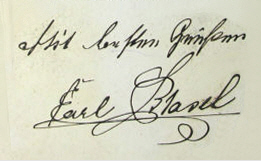 Mit besten Grüßen
Carl Blasel